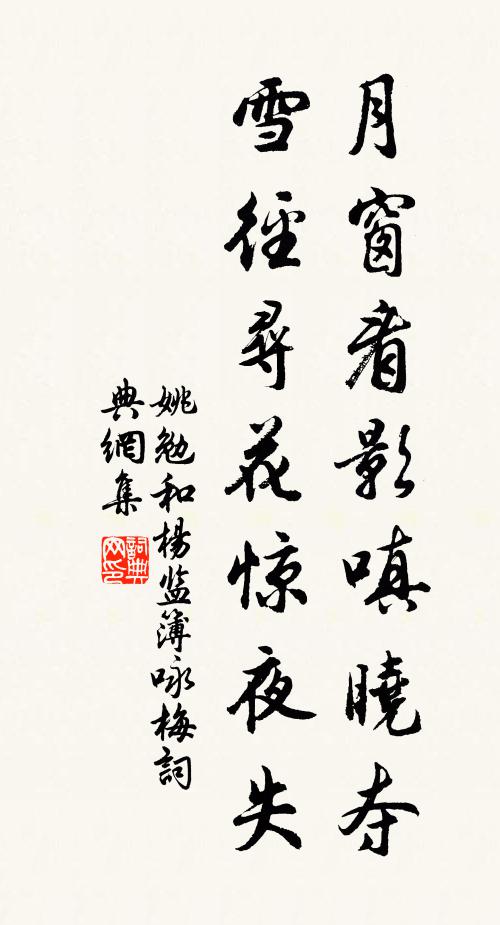 月窗看影嗔曉夺
雪徑尋花惊夜失
姚勉和楊监簿咏梅詞
典網集
詞典网印